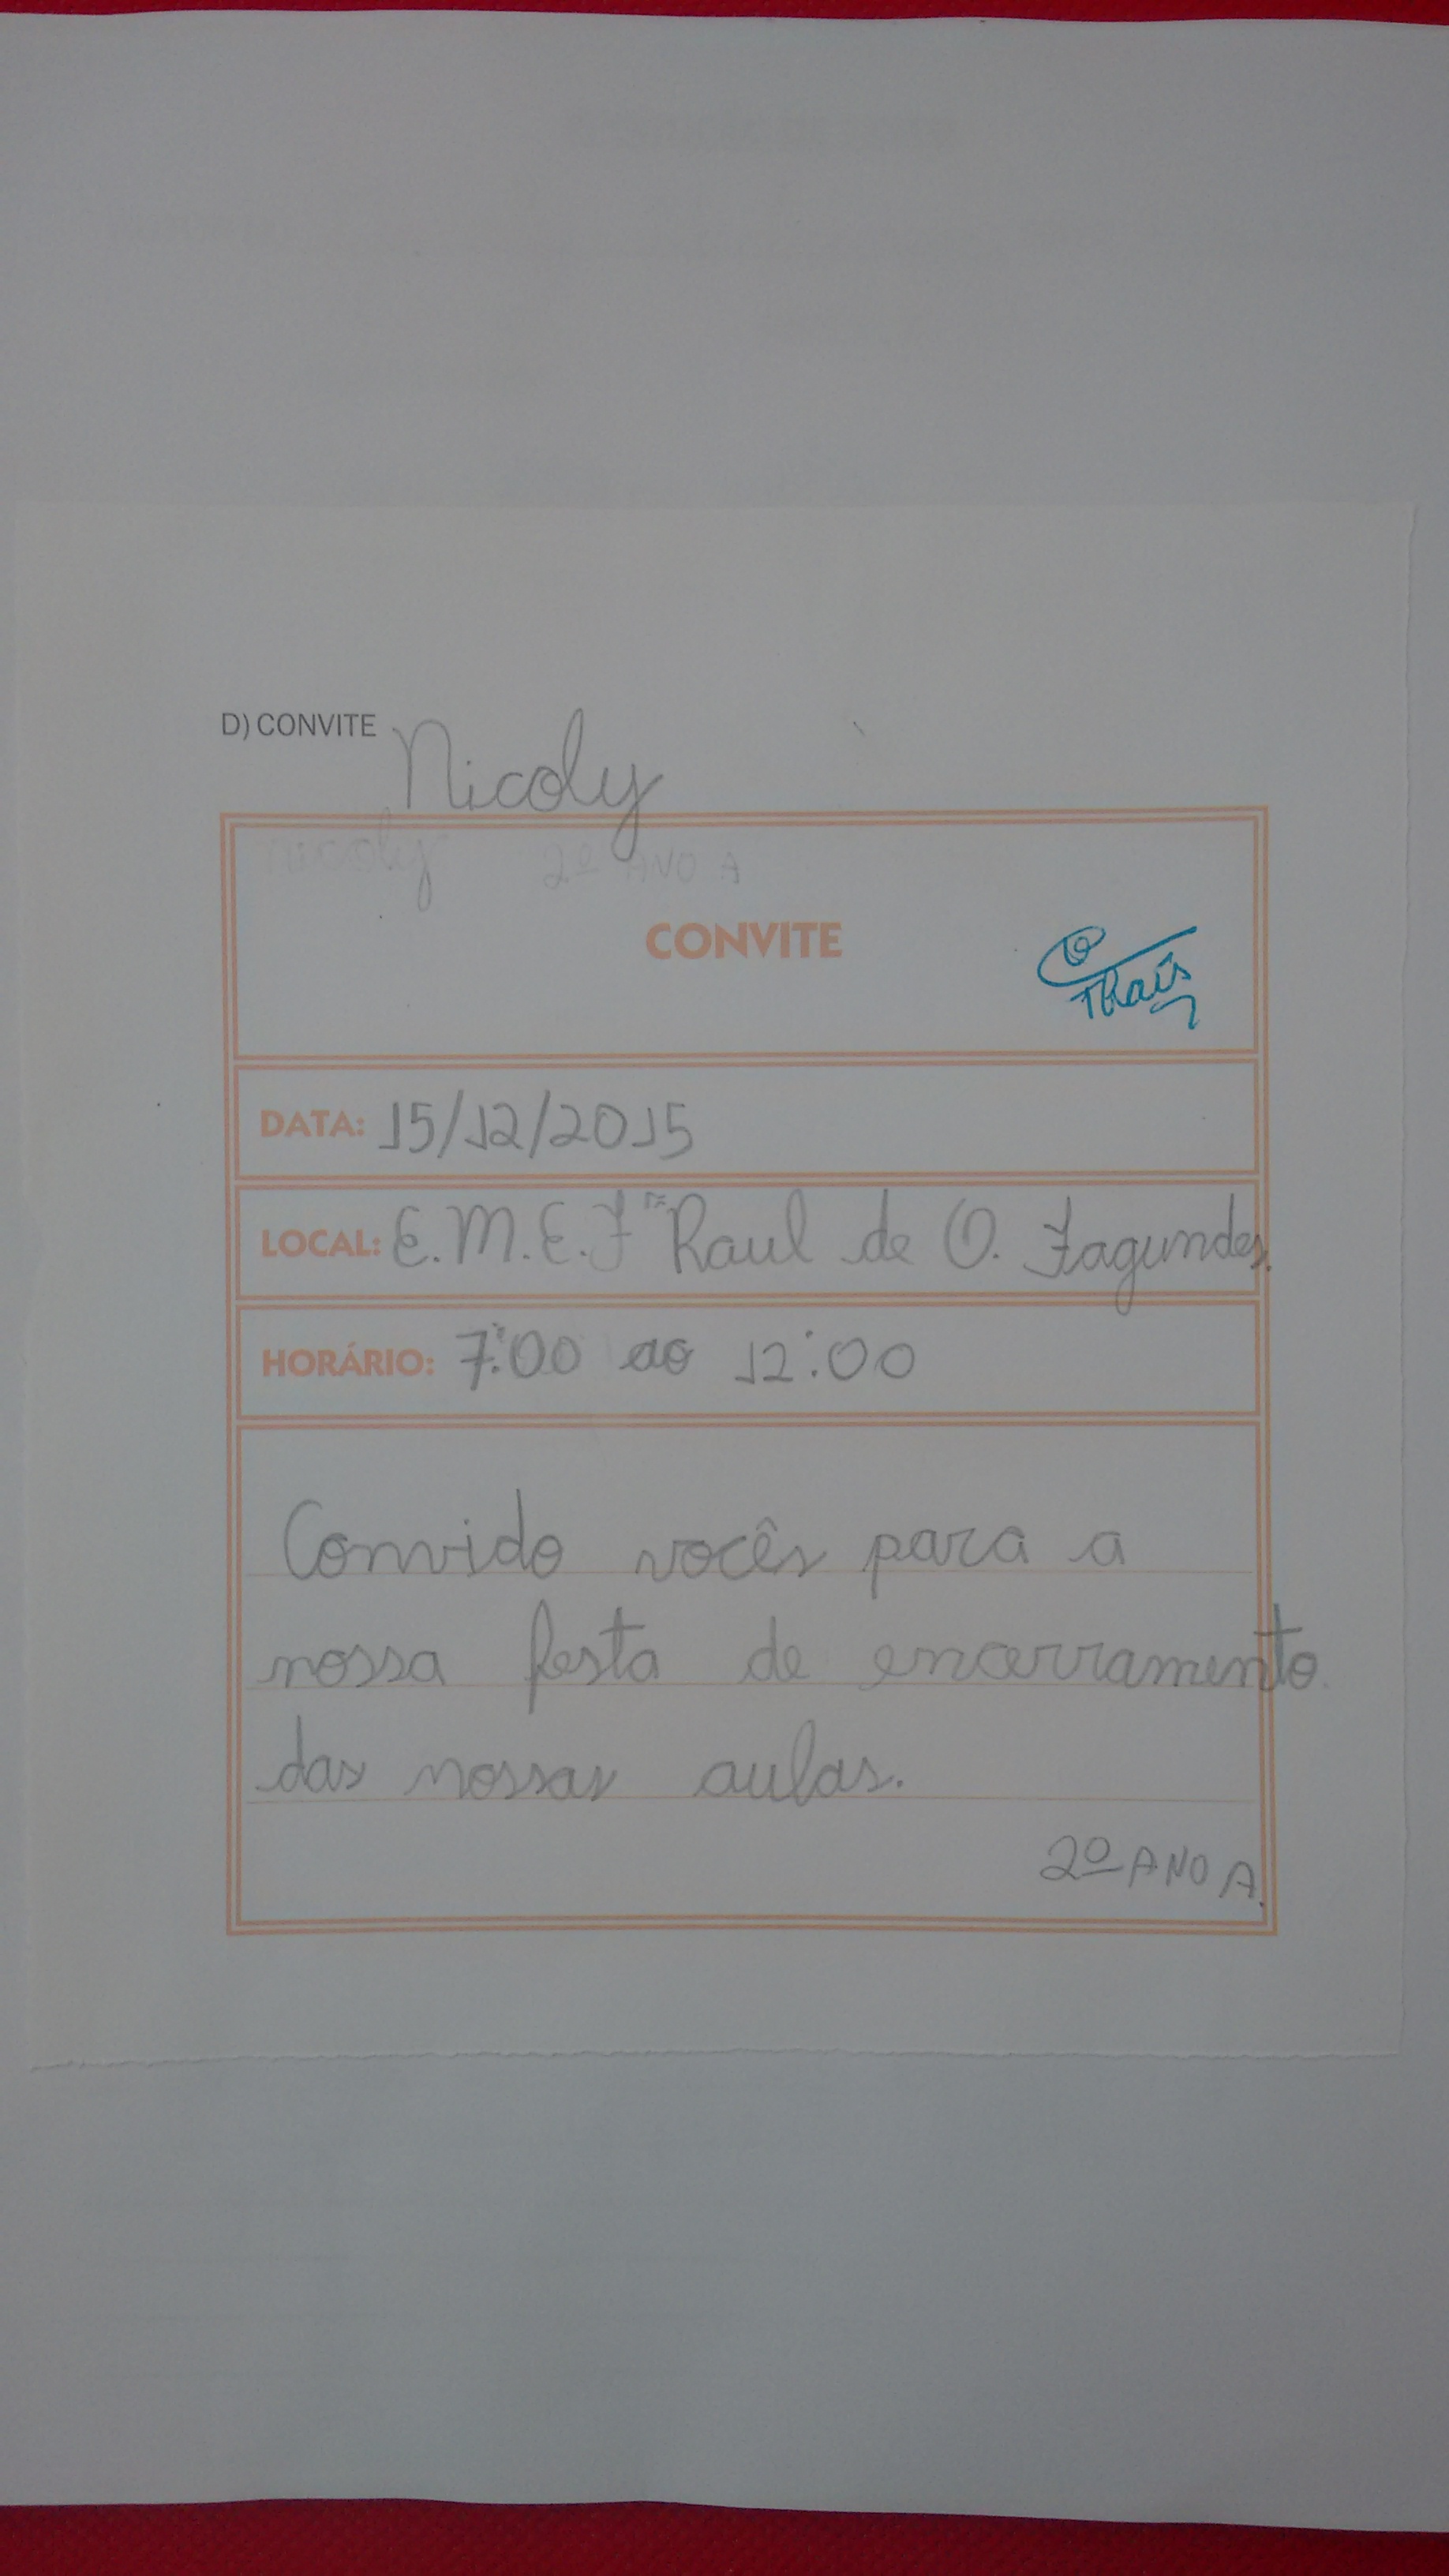 D) CONVITE Nicoly
Nicoly 2º ANO A
CONVITE
Thaís
DATA: 15/12/2015
LOCAL: E.M.E.F "Raul de O. Fagundes.
HORÁRIO: 7:00 ao 12:00
Convido vocês para a
nossa festa de encerramento
das nossas aulas.
2º ANO A.